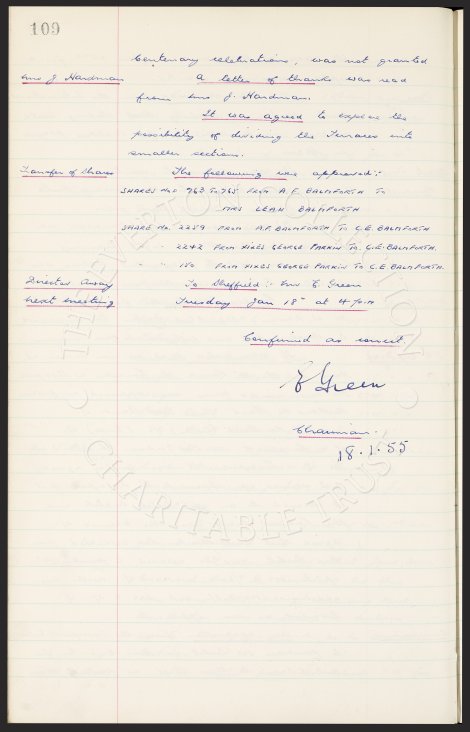 109
Centenary celebrations, was not granted
Mrs J. Hardman A letter of thanks was read
from Mrs J. Hardman.
It was agreed to explore the
possibility of dividing the Terraces into
smaller sections.
Transfer of Shares The following were approved:-
SHARES Nos 963 TO 965 FROM A.F. BALMFORTH TO
MRS LEAH BALMFORTH
SHARE No. 2259 FROM A.F. BALMFORTH TO C.E. BALMFORTH
" " 2242 FROM GEORGE PARKIN TO C.E. BALMFORTH.
" " 150 FROM GEORGE PARKIN TO C.E BALMFORTH.
Director Away To Sheffield :- Mr E Green
Next meeting Tuesday Jan 18th at 4 p.m
Confirmed as correct
E Green
Chairman.
18.1.55
THE EVERTON COLLECTION
CHARITABLE TRUST